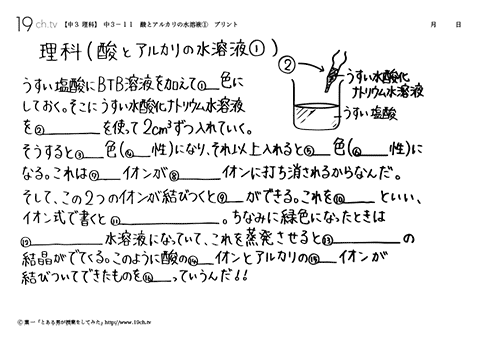 19 ch.tv 【中3 理科】 中3-11 酸とアルカリの水溶液① プリント 月 日
理科(酸とアルカリの水溶液①)
②
うすい水酸化
ナトリウム水溶液
うすい塩酸
うすい塩酸にBTB溶液を加えて①__色に
しておく。そこにうすい水酸化ナトリウム水溶液
を②______を使って2cm³ずつ入れていく。
そうすると③__色(④__性)になり、それ以上入れると⑤__色(⑥__性)に
なる。これは⑦__イオンが⑧____イオンに打ち消されるからなんだ。
そして、この2つのイオンが結びつくと⑨__ができる。これを⑩____といい、
イオン式で書くと⑪________。ちなみに緑色になったときは
⑫________水溶液になっていて、これを蒸発させると⑬________の
結晶がでてくる。このように酸の⑭__イオンとアルカリの⑮__イオンが
結びついてできたものを⑯__っていうんだ!!
© 葉一「とある男が授業をしてみた」http://www.19ch.tv